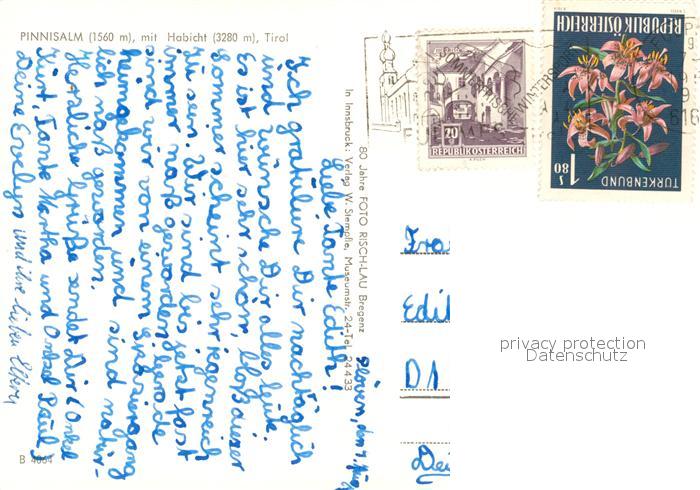 PINNISALM (1560 m), mit Habicht (3280 m), Tirol
den 4. Aug.
Liebe Tante Edith!
Ich gratuliere Dir nachträglich
und wünsche Dir alles Gute.
Es ist hier sehr schön, bloß dieser
Sommer scheint sehr regenreich
zu sein. Wir sind bis jetzt fast
immer naß geworden. Gerade
sind wir von einem Spaziergang
heimgekommen und sind natür-
lich naß geworden.
Herzliche Grüße sendet Dir, Onkel
Kurt, Tante Martha und Onkel Paul
Deine Evelyn und ihre lieben Eltern
B 4064
80 Jahre FOTO RISCH-LAU Bregenz
In Innsbruck: Verlag W. Stempfle, Museumstr. 24-Tel. 24433
REPUBLIK ÖSTERREICH
20 g
REPUBLIK ÖSTERREICH
TÜRKENBUND
S 1.80
SOMMERFRISCHE WINTERSPORT
Fra
Edit
D 1
privacy protection
Datenschutz